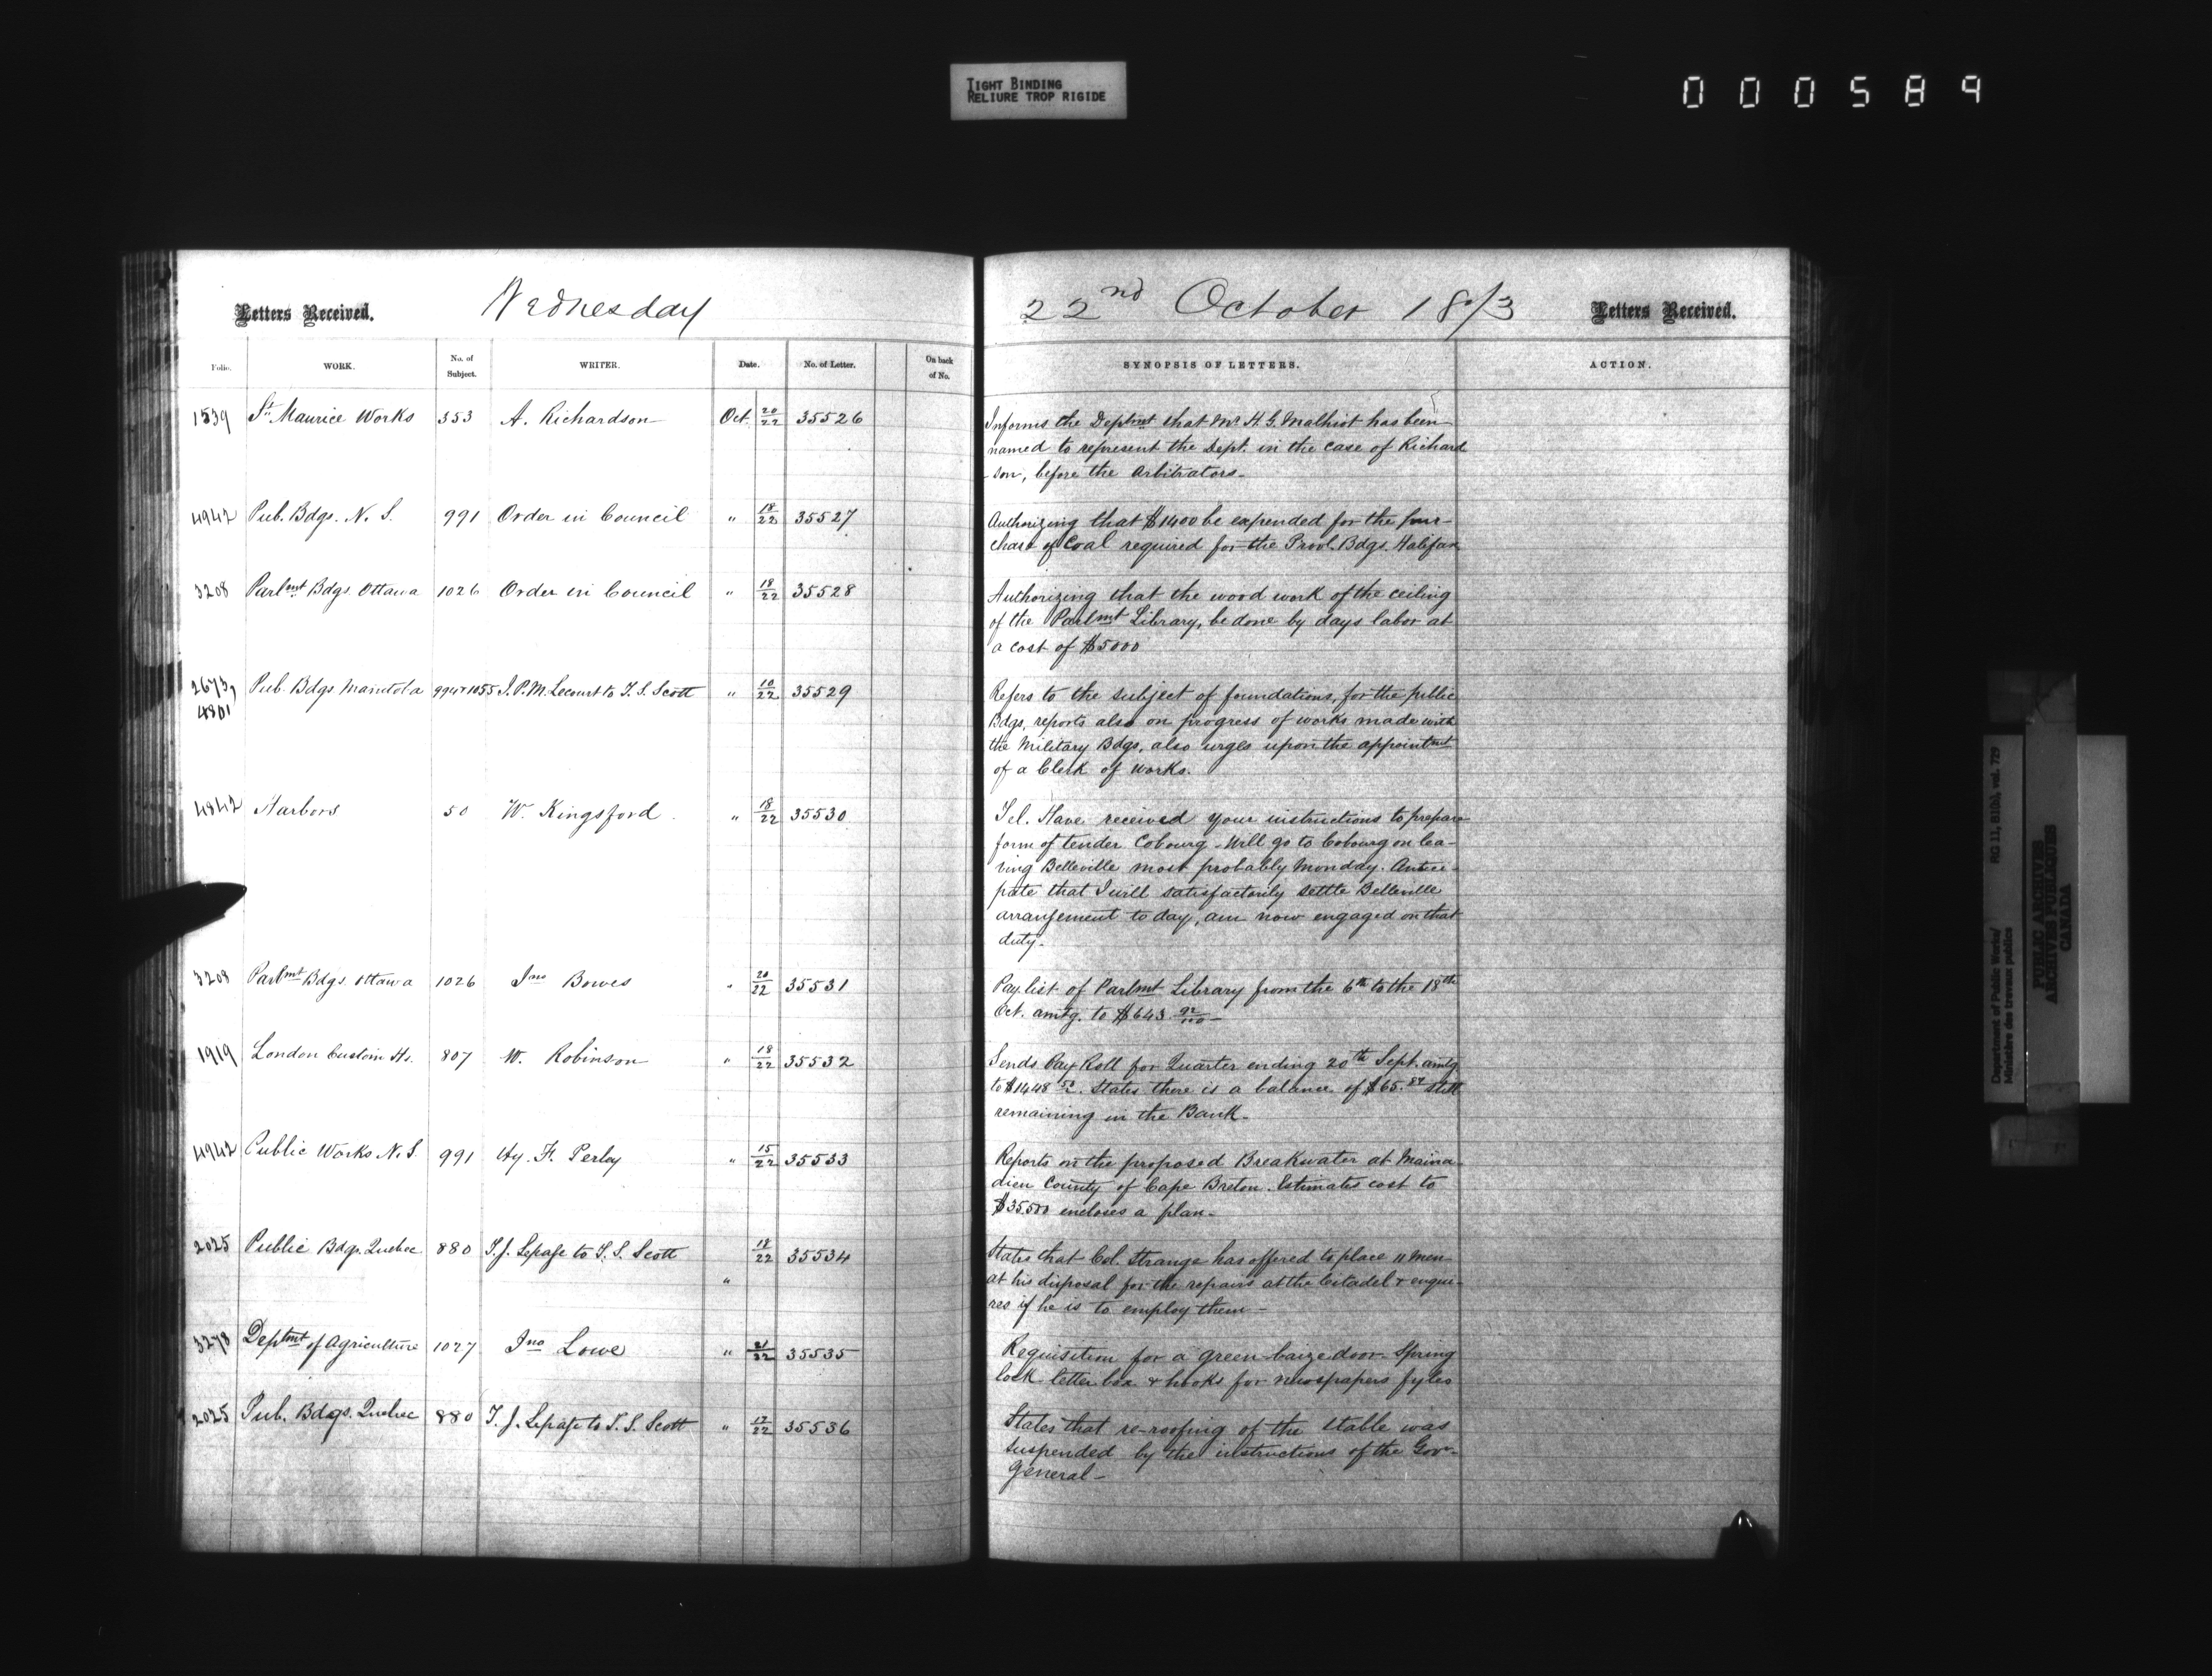 TIGHT BINDING
RELIURE TROP RIGIDE
000589
Letters Received.
Wednesday
22nd October 1873
Letters Received.
Folio.
WORK.
No. of Subject.
WRITER.
Date.
No. of Letter.
On back of No.
SYNOPSIS OF LETTERS.
ACTION.
1539 St. Maurice Works 353 A. Richardson Oct 20/22 35526
Informs the Deptmt that Mr H. G. Malhiot has been
named to represent the Dept. in the case of Richard
-son, before the Arbitrators-
4942 Pub. Bdgs. N. S. 991 Order in Council " 18/22 35527
Authorizing that $1400 be expended for the pur-
chase of Coal required for the Provl. Bdgs. Halifax
3208 Parlmt Bdgs Ottawa 1026 Order in Council " 18/22 35528
Authorizing that the wood work of the ceiling
of the Parlmt Library, be done by days labor at
a cost of $5000
2673, 4801 Pub. Bdgs Manitoba 994+1055 J. P. M. Lecourt to T. S. Scott " 10/22 35529
Refers to the subject of foundations, for the public
Bdgs, reports also on progress of works made with
the Military Bdgs, also urges upon the appointmt
of a Clerk of works.
4842 Harbors 50 W. Kingsford. " 18/22 35530
Tel. Have received your instructions to prepare
form of tender Cobourg - Will go to Cobourg on lea-
ving Belleville most probably Monday. Antici-
pate that I will satisfactorily settle Belleville
arrangement to day, am now engaged on that
duty-
3208 Parlmt Bdgs. Ottawa 1026 Jno Bowes " 20/22 35531
Pay list of Parlmt Library from the 6th to the 18th
Oct. amtg. to $643 92/100-
1919 London Custom Hs. 807 W. Robinson " 18/22 35532
Sends Pay Roll for Quarter ending 20th Sept. amtg
to $1448 52. States there is a balance of $65.84 still
remaining in the Bank-
4942 Public Works N. S. 991 Hy. F. Perley " 15/22 35533
Reports on the proposed Breakwater at Maina-
dieu County of Cape Breton. Estimates cost to
$35.500 encloses a plan-
2025 Public Bdgs. Quebec 880 T. J. Lepage to T. S. Scott " 18/22 35534
States that Col. Strange has offered to place 11 men
at his disposal for the repairs at the Citadel & enqui-
res if he is to employ them-
3278 Deptmt of Agriculture 1027 Jno Lowe " 21/22 35535
Requisition for a green baize door Spring
lock letter box & hooks for newspapers fyles
2025 Pub. Bdgs. Quebec 880 T. J. Lepage to T. S. Scott " 17/22 35536
States that re-roofing of the stable was
suspended by the instructions of the Gov-
General-
Department of Public Works/
Ministère des travaux publics
RG 11, B1(b), vol. 729
PUBLIC ARCHIVES
ARCHIVES PUBLIQUES
CANADA